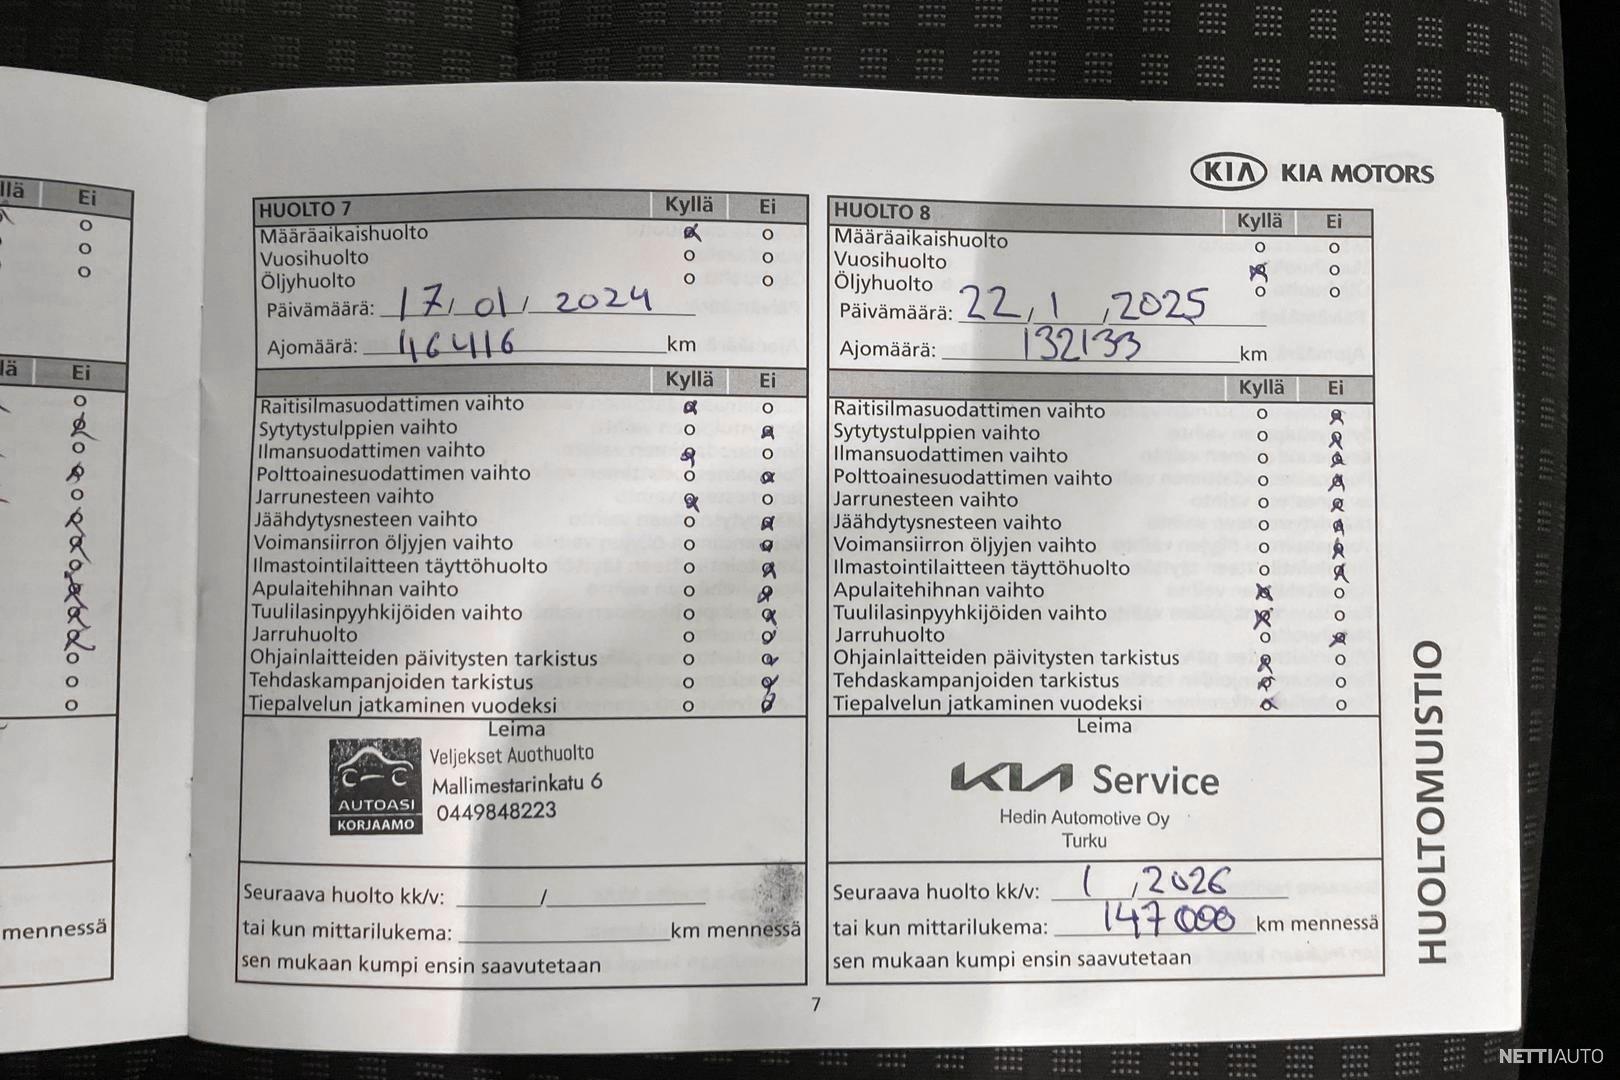 llä Ei
lä Ei
mennessä
KIA KIA MOTORS
HUOLTO 7 Kyllä Ei
Määräaikaishuolto
Vuosihuolto
Öljyhuolto
Päivämäärä: 17/01/2024
Ajomäärä: 46416 km
Kyllä Ei
Raitisilmasuodattimen vaihto
Sytytystulppien vaihto
Ilmansuodattimen vaihto
Polttoainesuodattimen vaihto
Jarrunesteen vaihto
Jäähdytysnesteen vaihto
Voimansiirron öljyjen vaihto
Ilmastointilaitteen täyttöhuolto
Apulaitehihnan vaihto
Tuulilasinpyyhkijöiden vaihto
Jarruhuolto
Ohjainlaitteiden päivitysten tarkistus
Tehdaskampanjoiden tarkistus
Tiepalvelun jatkaminen vuodeksi
Leima
AUTOASI
KORJAAMO
Veljekset Auothuolto
Mallimestarinkatu 6
0449848223
Seuraava huolto kk/v: /
tai kun mittarilukema: km mennessä
sen mukaan kumpi ensin saavutetaan
HUOLTO 8 Kyllä Ei
Määräaikaishuolto
Vuosihuolto
Öljyhuolto
Päivämäärä: 22/1/2025
Ajomäärä: 132133 km
Kyllä Ei
Raitisilmasuodattimen vaihto
Sytytystulppien vaihto
Ilmansuodattimen vaihto
Polttoainesuodattimen vaihto
Jarrunesteen vaihto
Jäähdytysnesteen vaihto
Voimansiirron öljyjen vaihto
Ilmastointilaitteen täyttöhuolto
Apulaitehihnan vaihto
Tuulilasinpyyhkijöiden vaihto
Jarruhuolto
Ohjainlaitteiden päivitysten tarkistus
Tehdaskampanjoiden tarkistus
Tiepalvelun jatkaminen vuodeksi
Leima
KIA Service
Hedin Automotive Oy
Turku
Seuraava huolto kk/v: 1/2026
tai kun mittarilukema: 147000 km mennessä
sen mukaan kumpi ensin saavutetaan
HUOLTOMUISTIO
7
NETTIAUTO